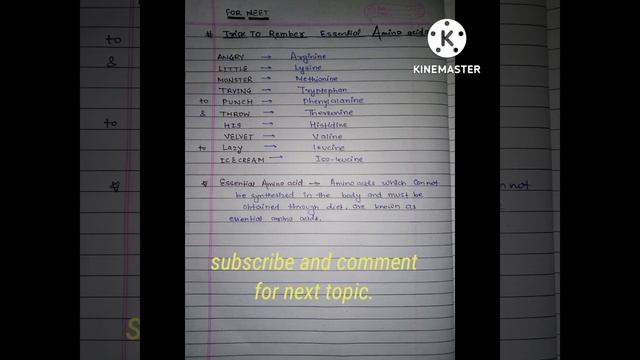 FOR NEET
# Trick To Rember Essential Amino acids
ANGRY → Arginine
LITTLE → Lysine
MONSTER → Methionine
TRYING → Tryptophan
to PUNCH → Phenylalanine
& THROW → Threonine
HIS → Histidine
VELVET → Valine
to LAZY → Leucine
ICE CREAM → Iso-leucine
* Essential Amino acid → Amino acids which cannot
be synthesized in the body and must be
obtained through diet, are known as
essential amino acids.
subscribe and comment
for next topic.
KINEMASTER
to
&
to
not
S